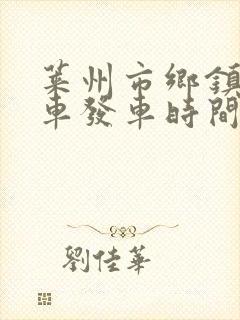 萊州市鄉鎮
車發車時間
劉佳華